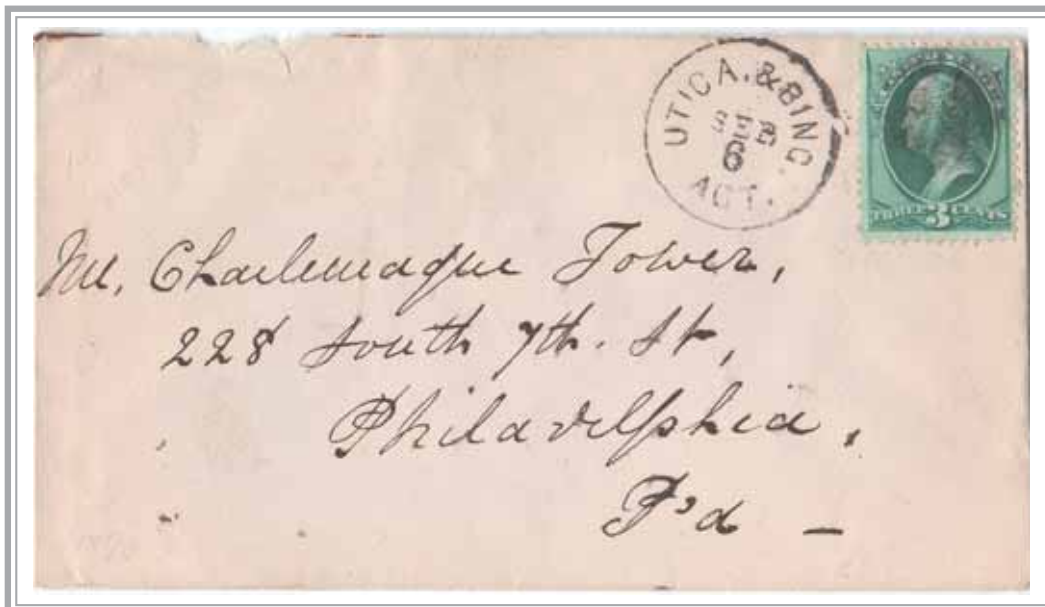 UTICA. & BING.
SEP
6
AGT.
THREE 3 CENTS
Mr. Charlemagne Tower,
228 South 7th. St,
Philadelphia,
P'a –